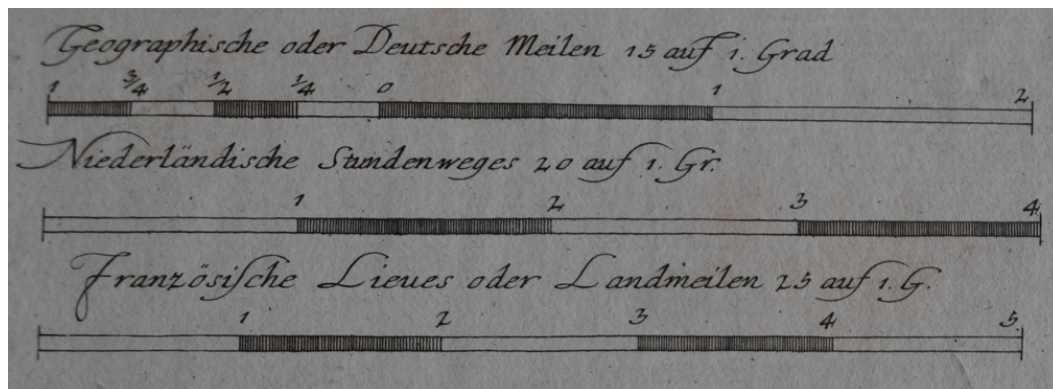 Geographische oder Deutsche Meilen 15 auf 1. Grad
1 3/4 1/2 1/4 0 1 2
Niederländische Stundenweges 20 auf 1. Gr.
1 2 3 4
Französische Lieues oder Landmeilen 25 auf 1. G.
1 2 3 4 5